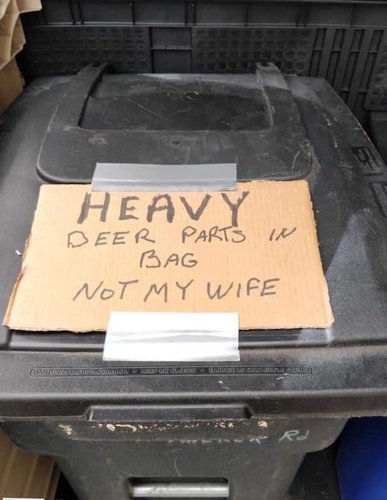 HEAVY
DEER PARTS IN
BAG
NOT MY WIFE
Rd